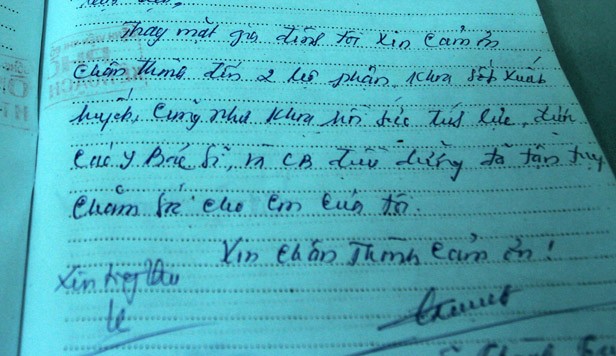 Thay mặt gia đình tôi xin cảm ơn
chân thành đến 2 bộ phận Khoa sốt xuất
huyết, cũng như Khoa hồi sức tích cực, đến
các y Bác sĩ, và CB điều dưỡng đã tận tụy
chăm sóc cho em của tôi.
Xin chân thành cảm ơn!